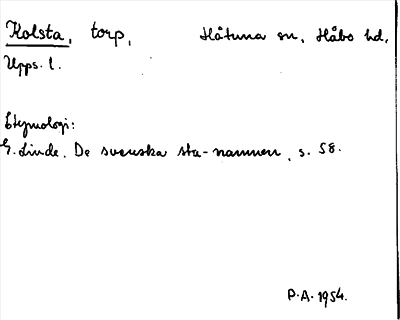 Kolsta, torp, Håtuna sn, Håbo hd,
Upps. l.
Etymologi:
G. Linde. De svenska sta-namnen, s. 58.
P.A. 1954.